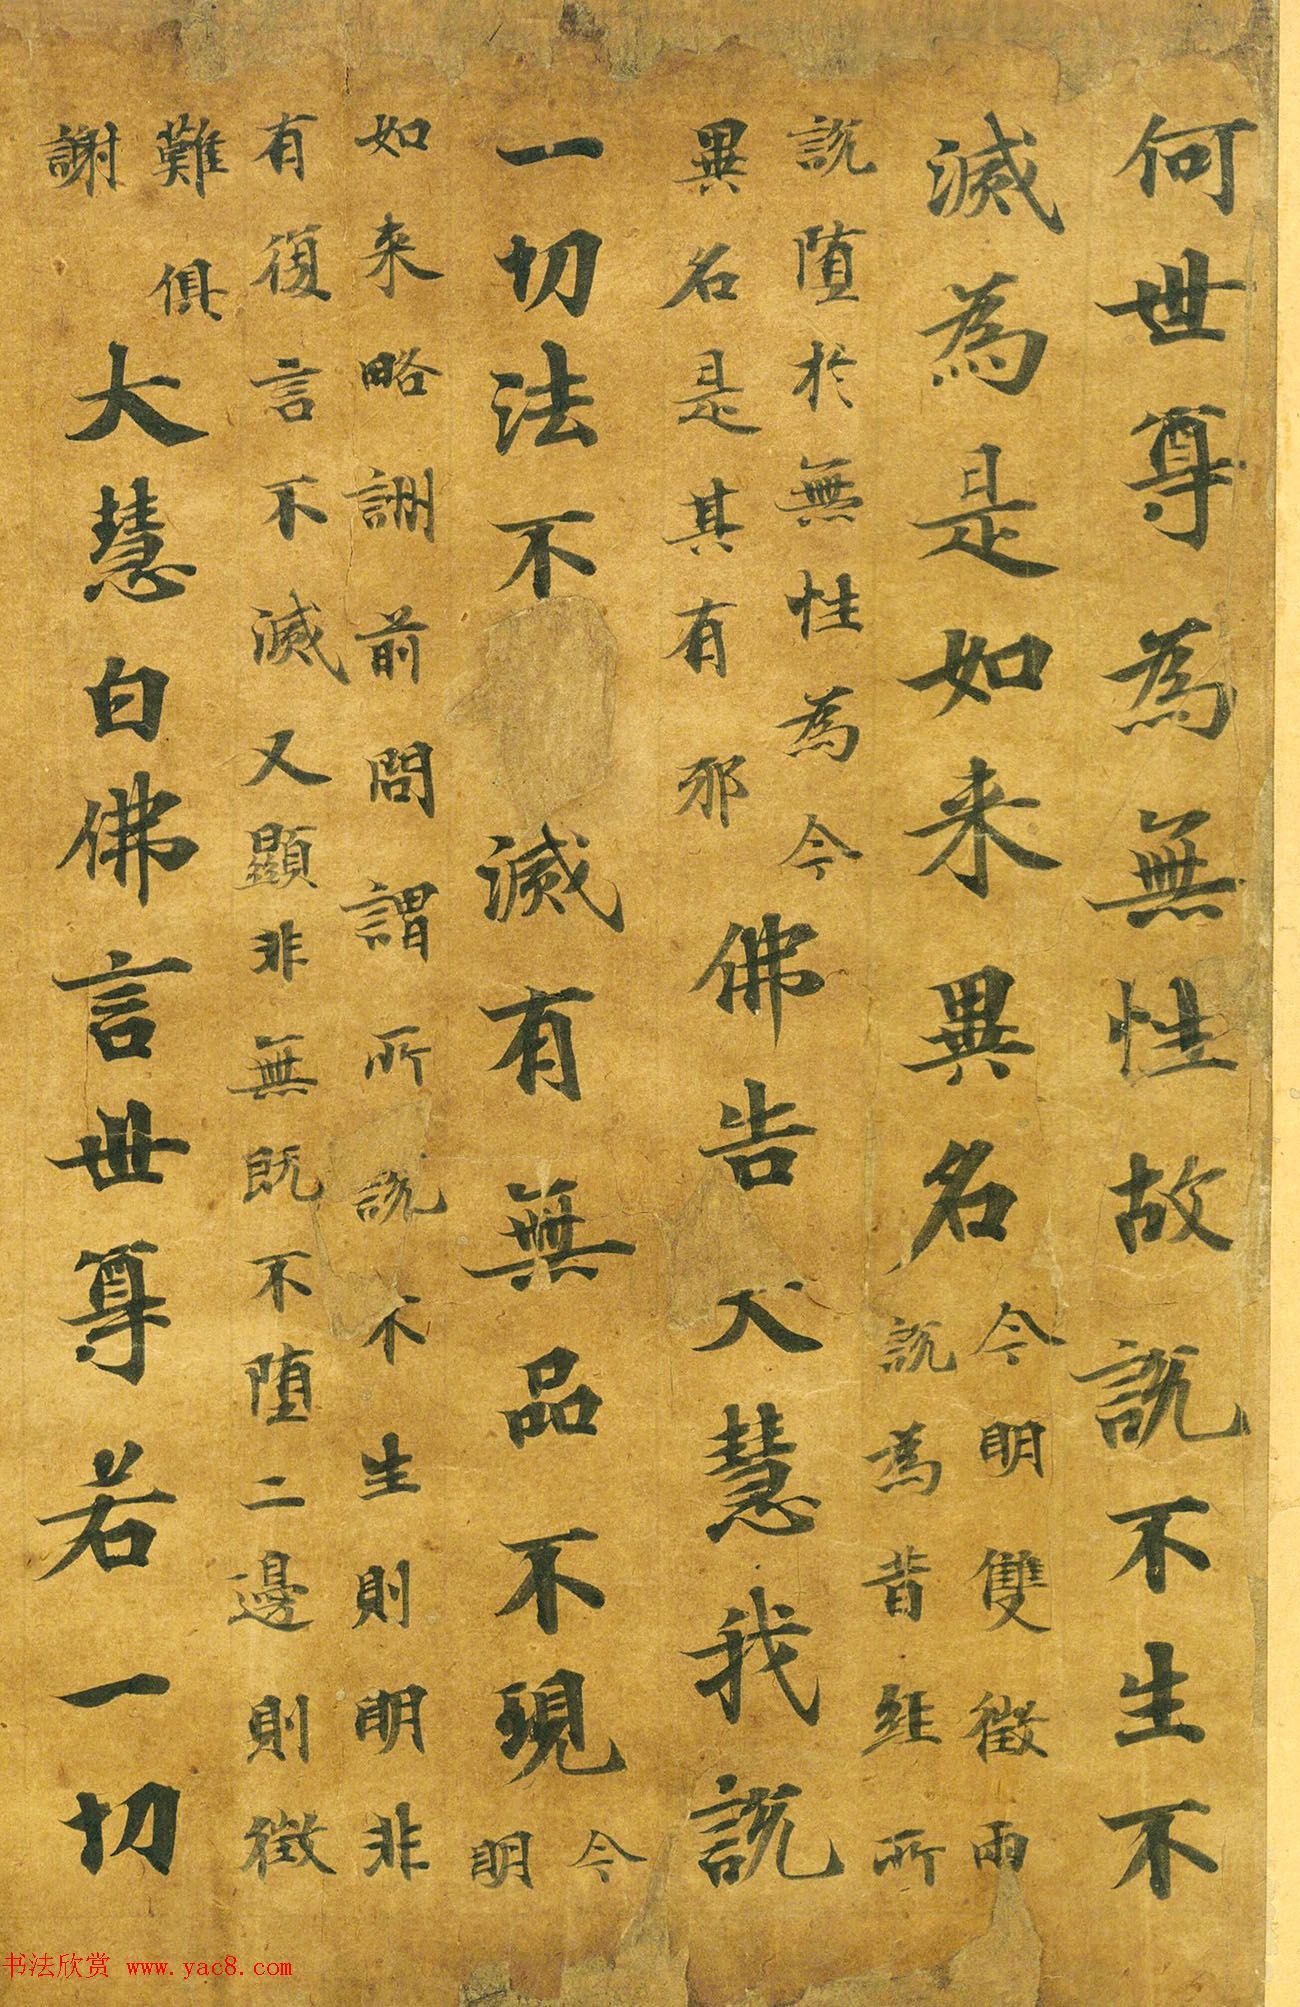 何世尊為無性故說不生不
滅為是如来異名
今明雙徵兩
說為昔經所
說墮於無性為今
異名是其有邪
佛告大慧我說
一切法不滅有無品不現
今
明
如来略詶前問謂所說不生則明非
有復言不滅又顯非無既不墮二邊則徵
難俱
謝
大慧白佛言世尊若一切
书法欣赏 www.yac8.com